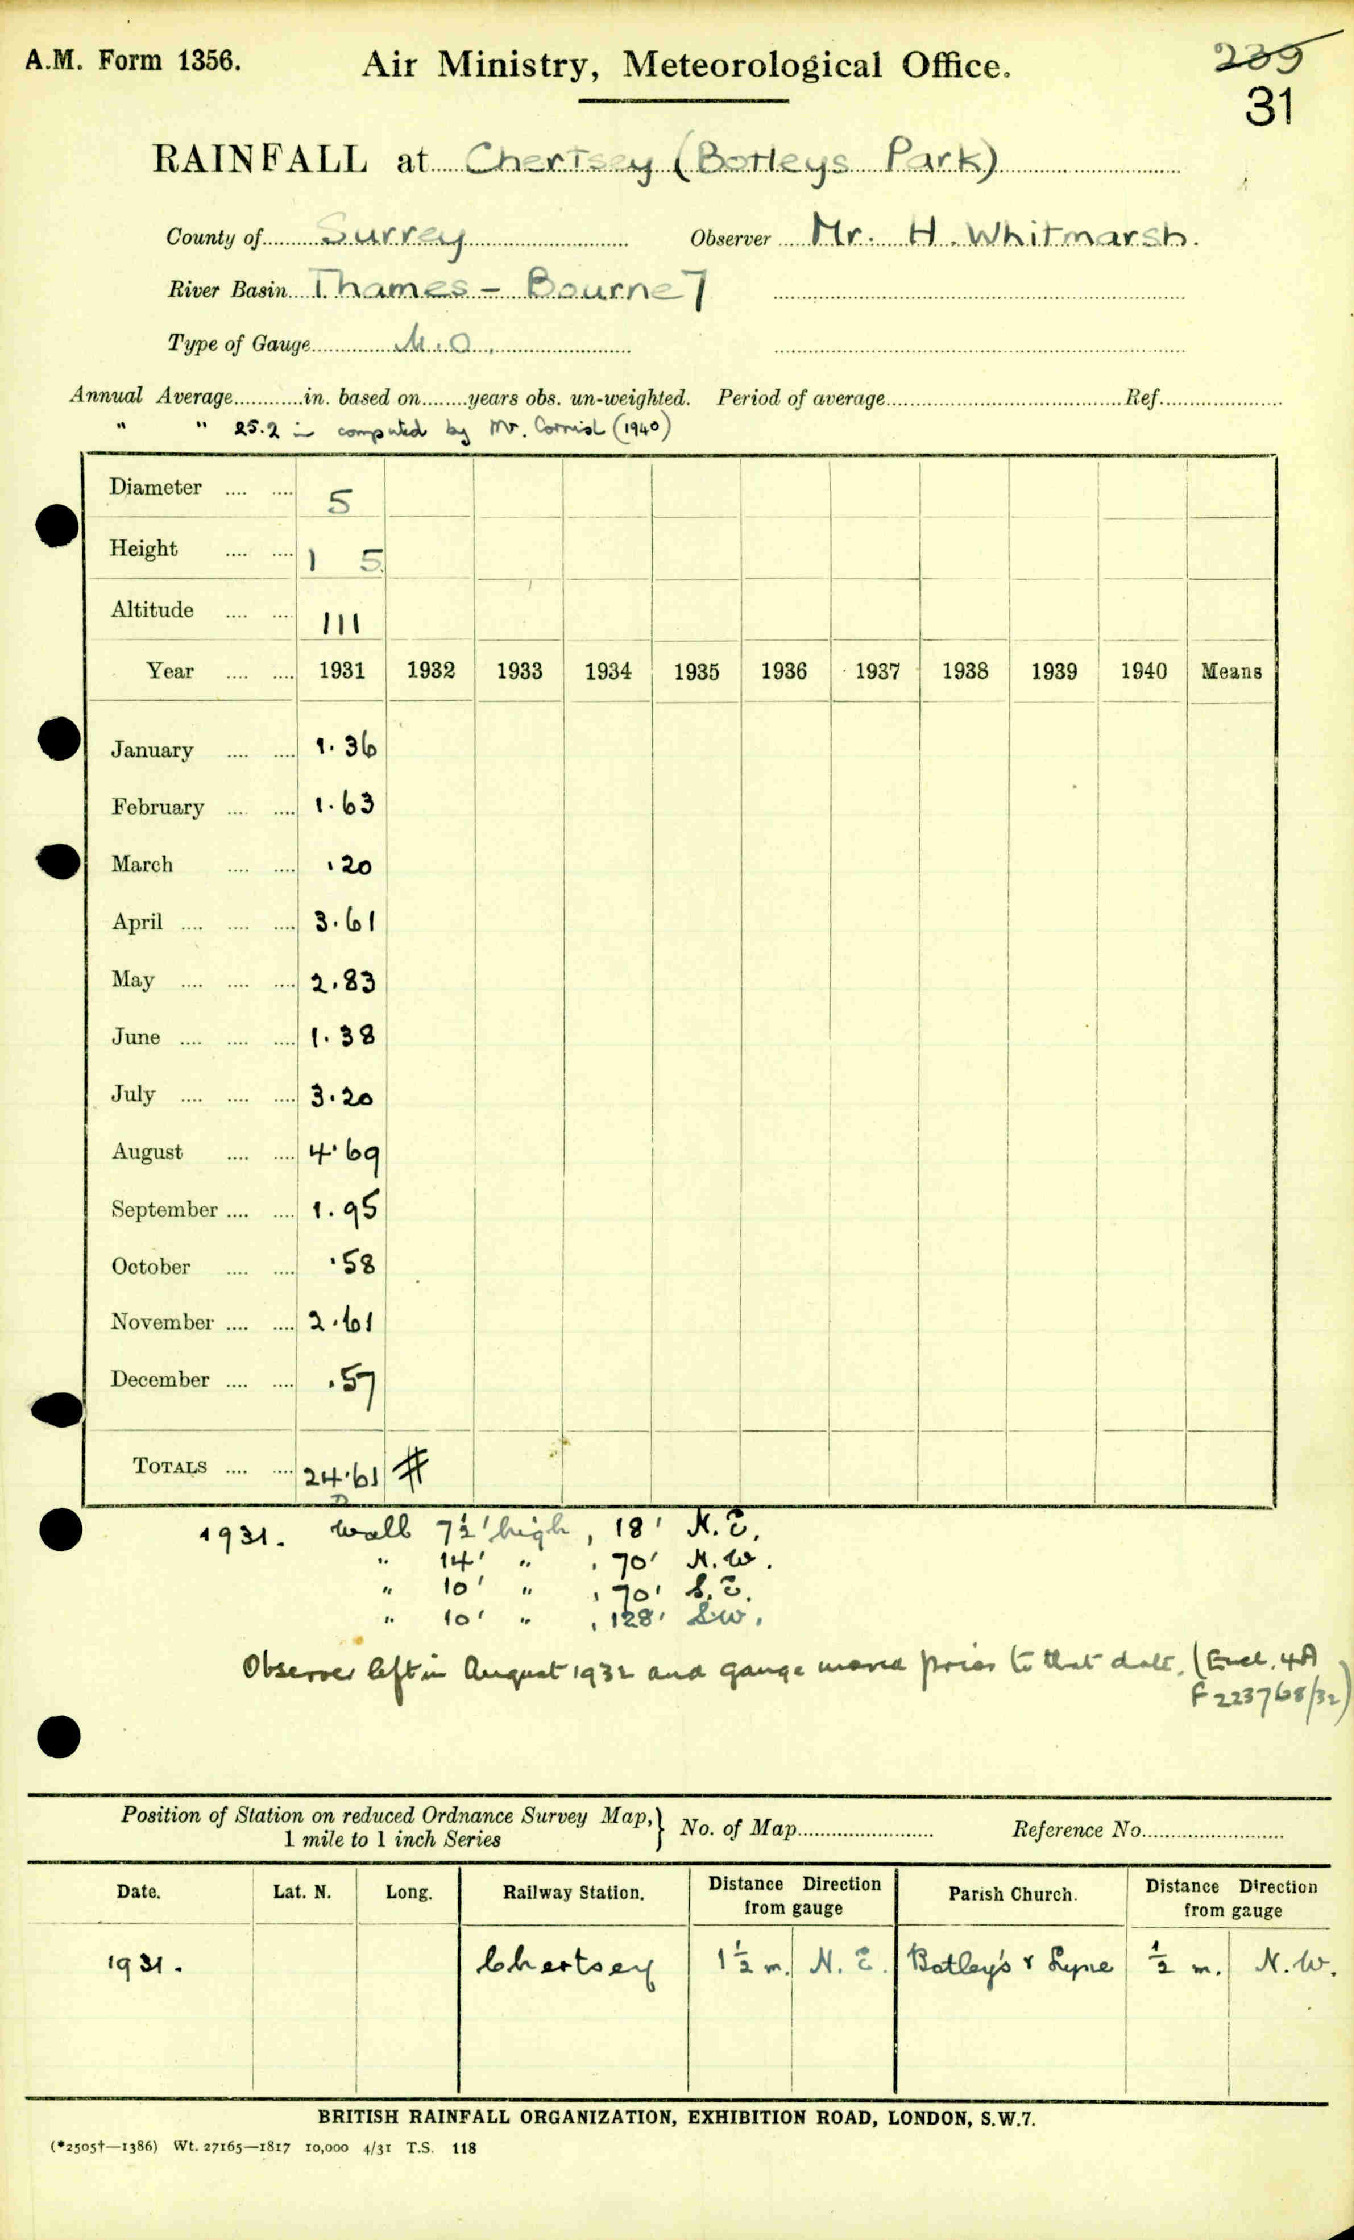 A.M. Form 1356. Air Ministry, Meteorological Office. 239
31
RAINFALL at Chertsey (Botleys Park)
County of Surrey Observer Mr. H. Whitmarsh.
River Basin Thames - Bourne 7
Type of Gauge M.O.
Annual Average in. based on years obs. un-weighted. Period of average Ref.
" " 25.2 in computed by Mr. Cornish (1940)
Diameter 5
Height 1 5
Altitude 111
Year 1931 1932 1933 1934 1935 1936 1937 1938 1939 1940 Means
January 1.36
February 1.63
March .20
April 3.61
May 2.83
June 1.38
July 3.20
August 4.69
September 1.95
October .58
November 2.61
December .57
TOTALS 24.61 #
1931. Wall 7½' high, 18' N.E.
" 14' " , 70' N.W.
" 10' " , 70' S.E.
" 10' " , 128' S.W.
Observer left in August 1932 and gauge moved prior to that date. (Encl. 4A
F 223768/32)
Position of Station on reduced Ordnance Survey Map, } No. of Map Reference No.
1 mile to 1 inch Series
Date. Lat. N. Long. Railway Station. Distance Direction from gauge Parish Church. Distance Direction from gauge
1931. Chertsey 1½ m. N.E. Botley's & Lyne ½ m. N.W.
BRITISH RAINFALL ORGANIZATION, EXHIBITION ROAD, LONDON, S.W.7.
(*2505†—1386) Wt. 27165—1817 10,000 4/31 T.S. 118